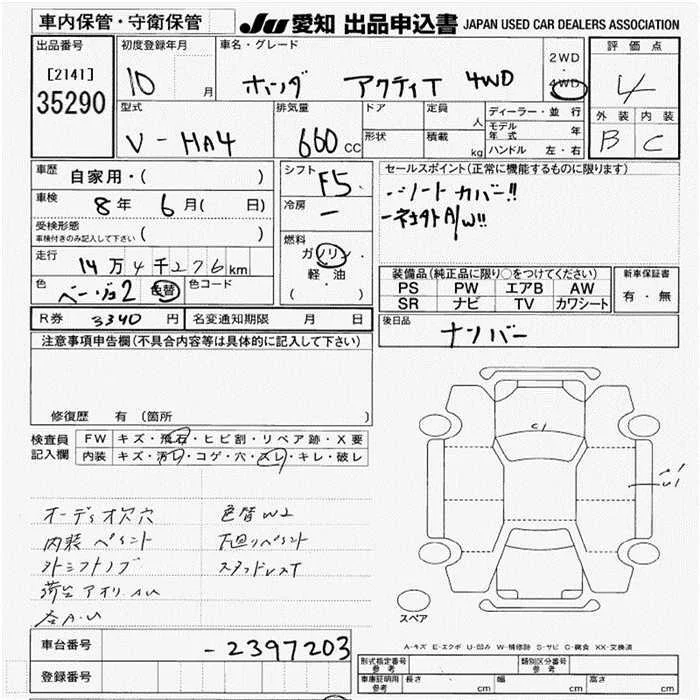 車内保管・守衛保管
JU 愛知 出品申込書 JAPAN USED CAR DEALERS ASSOCIATION
出品番号
[2141]
35290
初度登録年月
10 月
車名・グレード
ホンダ アクティT 4WD
2WD
・
4WD
評価点
4
外装 内装
B C
型式
V-HA4
排気量
660 CC
ドア
形状
定員
人
積載
kg
ディーラー・並行
モデル年式 年
ハンドル 左・右
車歴
自家用・( )
車検
8年 6月( 日)
受検形態
車検付きのみ記入して下さい ( )
走行
14万4千276km
色
ベージュ2 色替
色コード
シフト
F5
冷房
ー
燃料
ガソリン
軽・油
( )
セールスポイント(正常に機能するものに限ります)
・シートカバー!!
装備品(純正品に限り○をつけてください)
PS PW エアB AW
SR ナビ TV カワシート
新車保証書
有・無
R券 3340円 名変通知期限 月 日
後日品
ナンバー
注意事項申告欄(不具合内容等は具体的に記入して下さい)
修復歴 有 (箇所 )
検査員
記入欄
FW キズ・飛石・ヒビ割・リペア跡・X要
内装 キズ・汚レ・コゲ・穴・スレ・キレ・破レ
オーディオ欠穴 色替W2
内装ペイント 下廻りペイント
外シフトノブ スタッドレスT
荷台アオリAU
各A.U
スペア
A-キズ E-エクボ U-凹み W-補修跡 S-サビ C-腐食 XX-交換済
車台番号
-2397203
登録番号
型式指定番号
参考
類別区分番号
参考
車庫証明用
参考
長さ cm 幅 cm 高さ cm